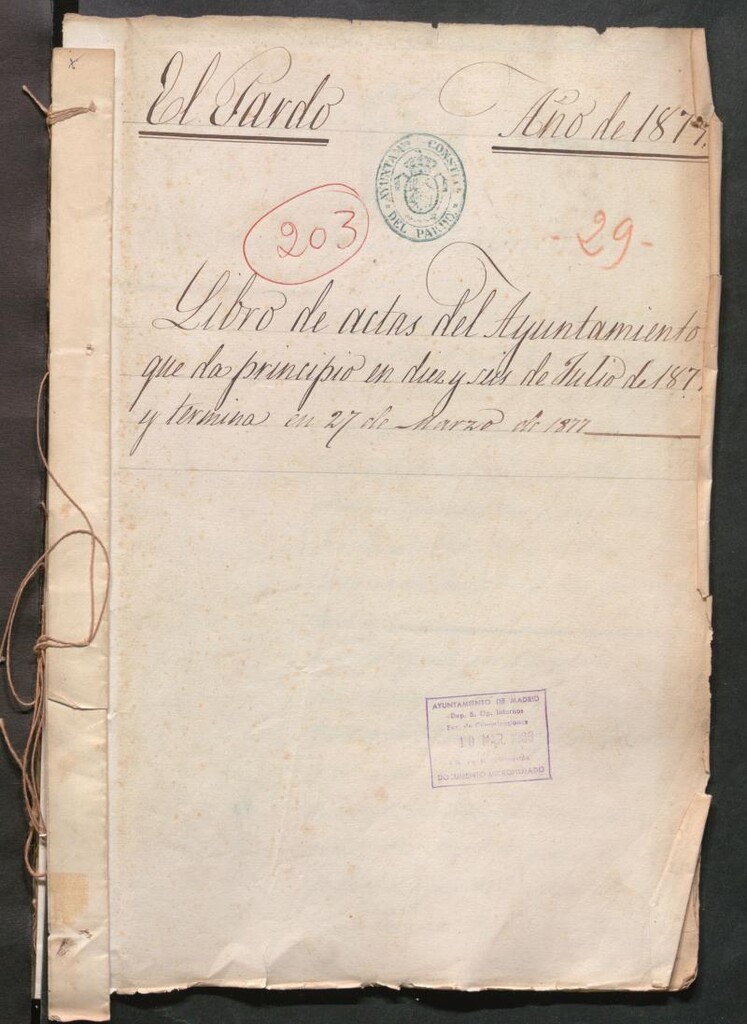 x
El Pardo
Año de 1877.
AYUNTAMTO CONSTIAL
DEL PARDO
203
-29-
Libro de actas del Ayuntamiento
que da principio en diez y seis de Julio de 187
y termina en 27 de Marzo de 1877
AYUNTAMIENTO DE MADRID
Dep. S. Op. Internas
MAR.
DOCUMENTO MICROFILMADO